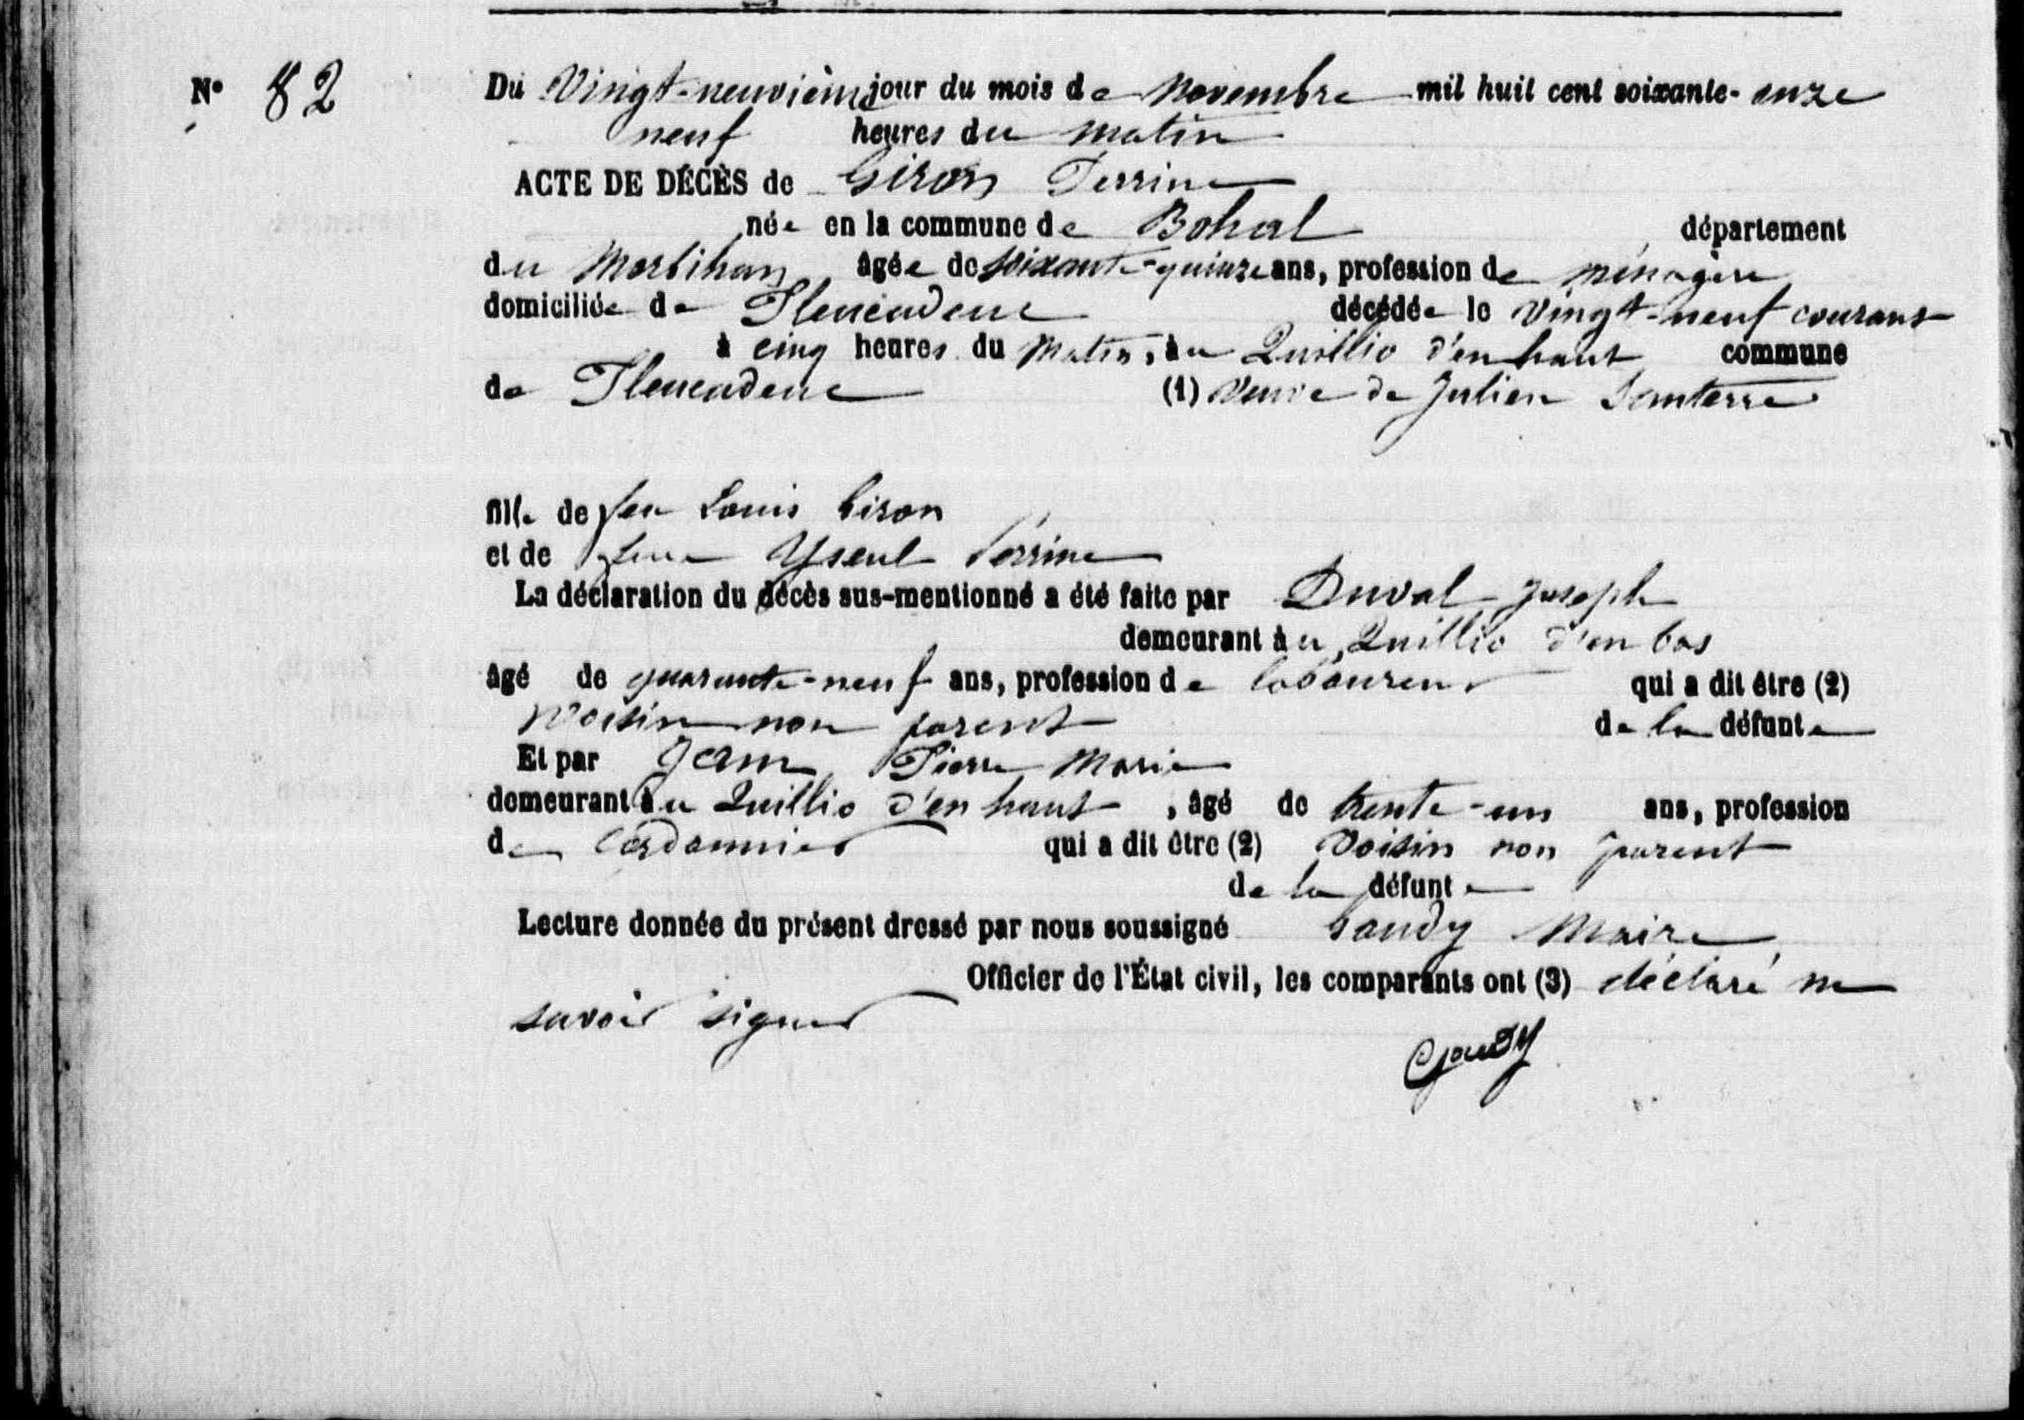 N° 82
Du Vingt-neuvième jour du mois de Novembre mil huit cent soixante-onze
neuf heures du matin
ACTE DE DÉCÈS de Giron Perrine
née en la commune de Bohal département
du Morbihan âgée de soixante-quinze ans, profession de ménagère
domiciliée de Pleucadeuc décédée le vingt-neuf courant
à cinq heures du matin, au Quillio d'en haut commune
de Pleucadeuc (1) veuve de Julien Santerre
fille de feu Louis Giron
et de feue Yseul Perrine
La déclaration du décès sus-mentionné a été faite par Duval Joseph
demeurant au Quillio d'en bas
âgé de quarante-neuf ans, profession de laboureur qui a dit être (2)
voisin non parent de la défunte
Et par Jam Pierre Marie
demeurant au Quillio d'en haut, âgé de trente-un ans, profession
de Cordonnier qui a dit être (2) voisin non parent
de la défunte
Lecture donnée du présent dressé par nous soussigné Gaudy Maire
Officier de l'État civil, les comparants ont (3) déclaré ne
savoir signer
Gaudy